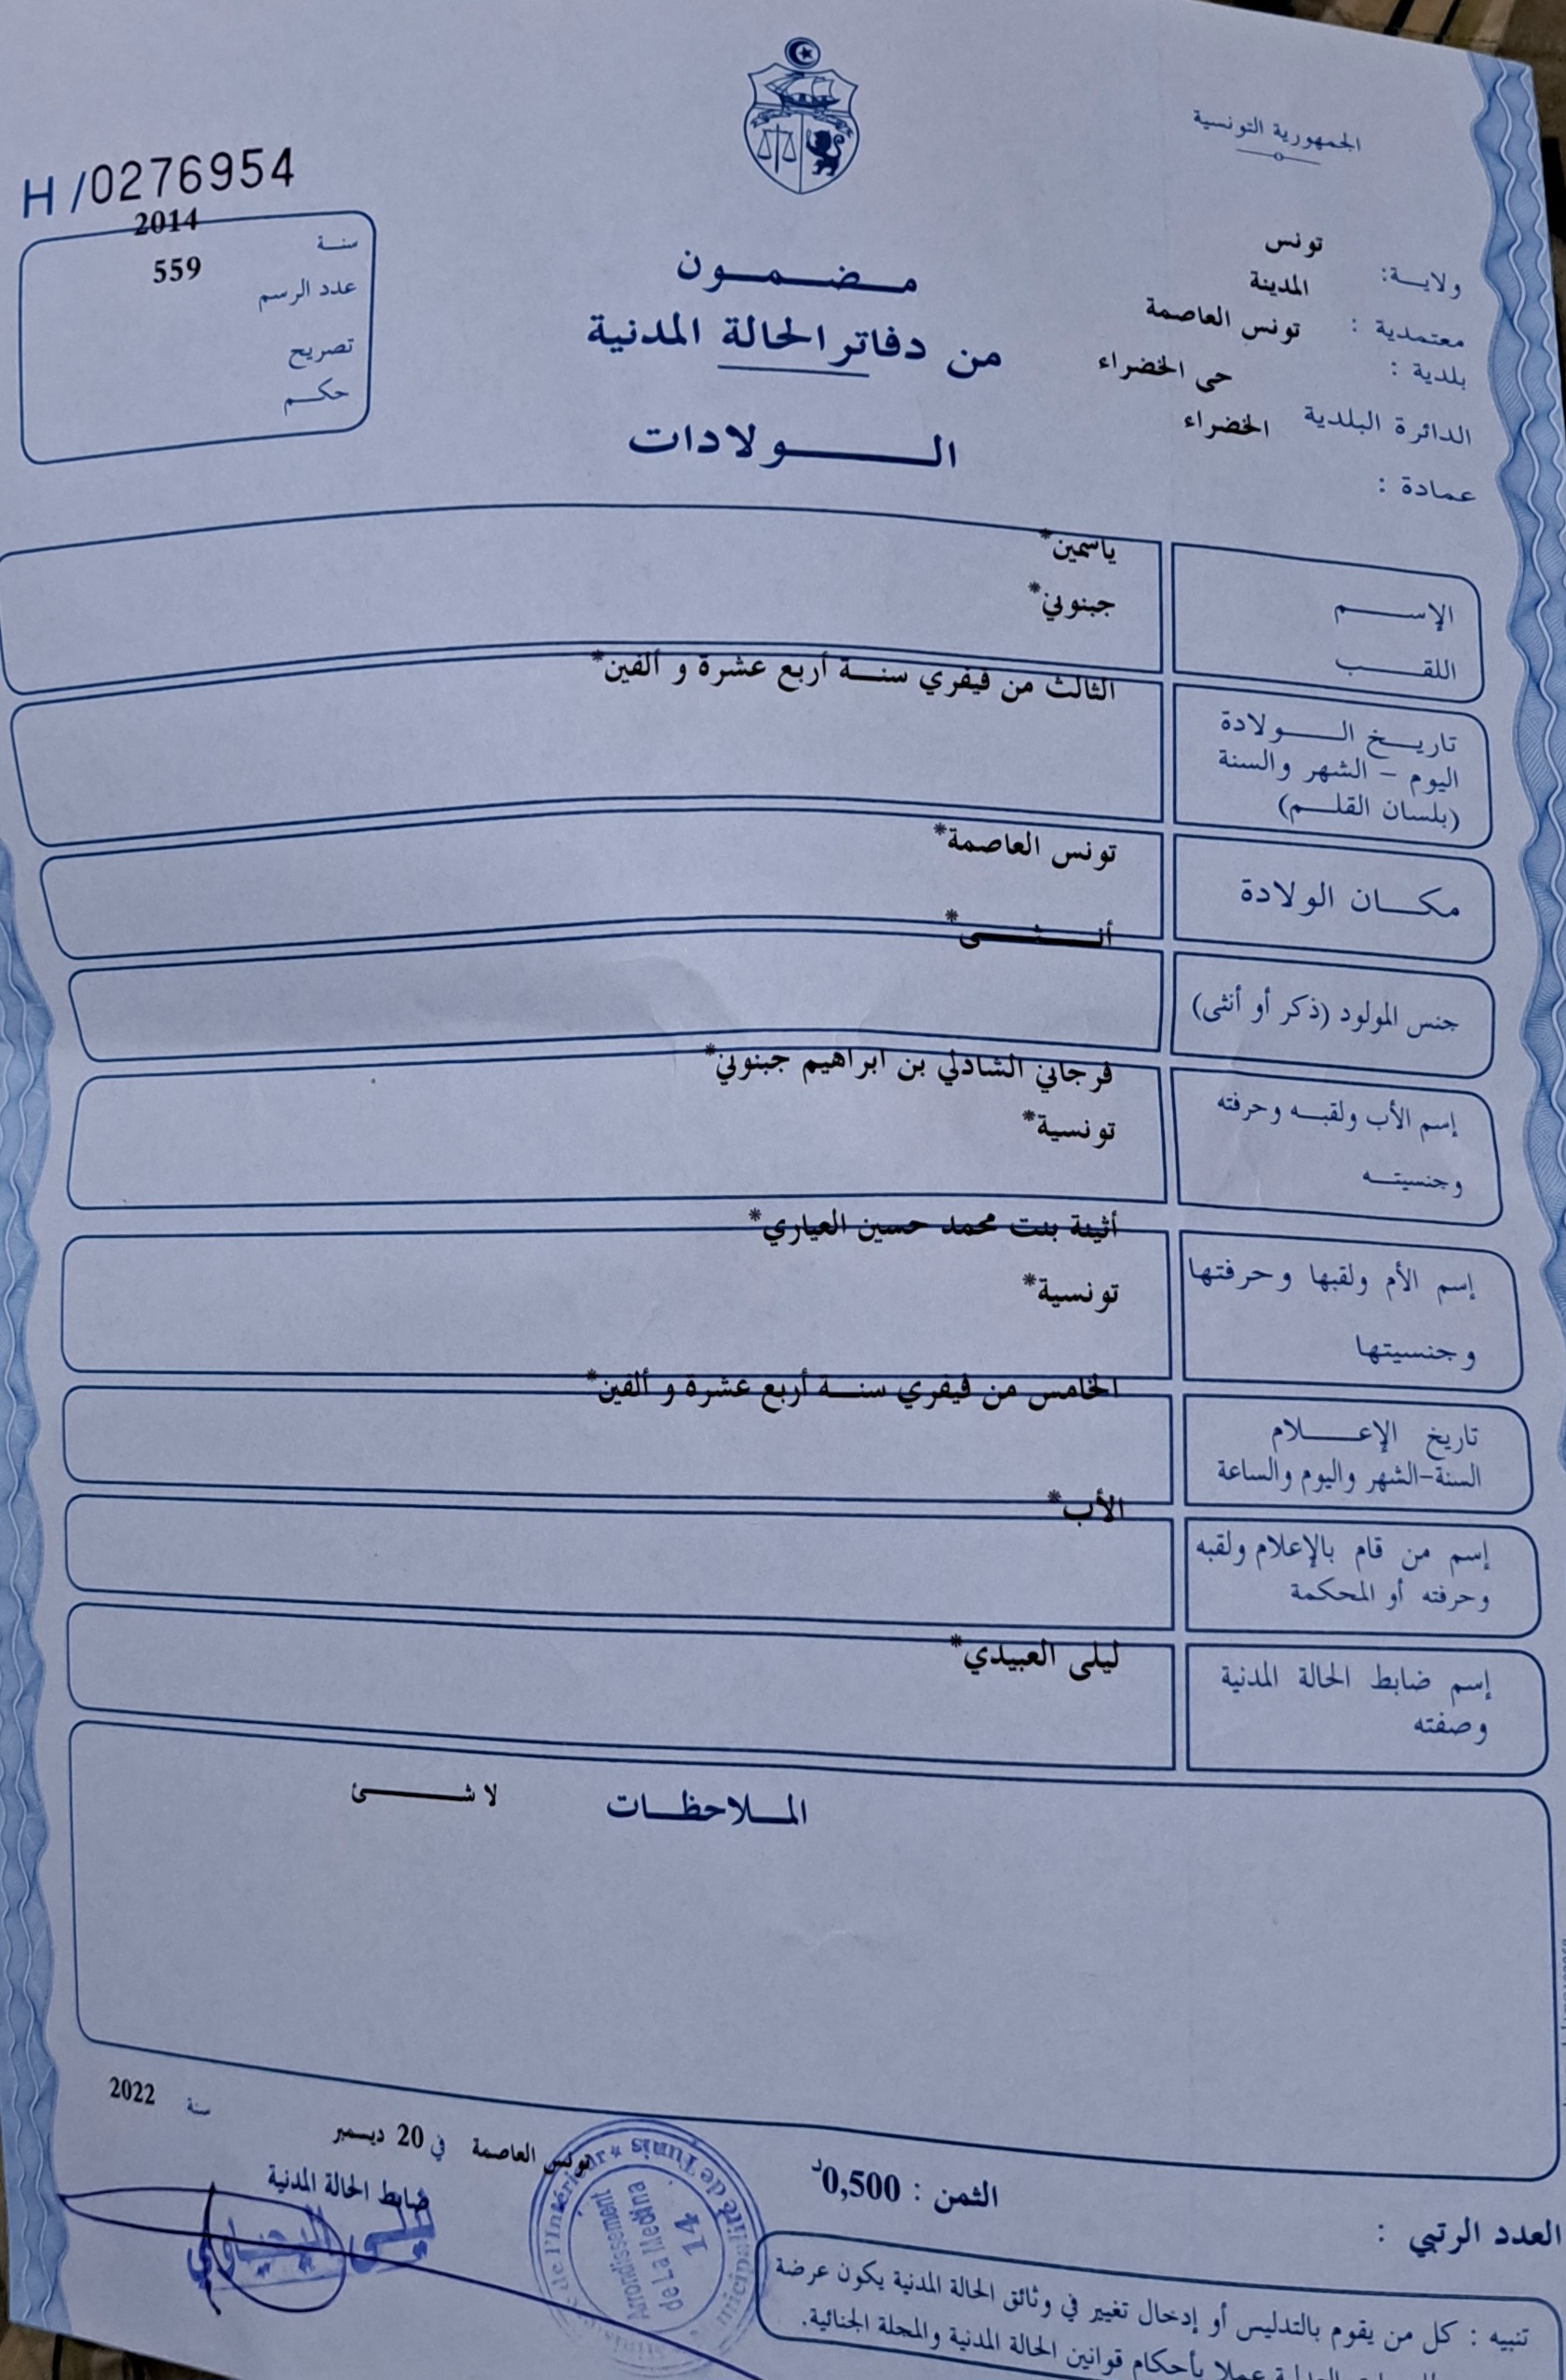 الجمهورية التونسية
H/0276954
سنة 2014
عدد الرسم 559
تصريح
حكم
مضمون
من دفاتر الحالة المدنية
الولادات
ولاية: تونس
معتمدية : المدينة
بلدية : تونس العاصمة
الدائرة البلدية حى الخضراء
عمادة : الخضراء
الإسم ياسمين*
اللقب جبنوني*
تاريخ الولادة الثالث من فيفري سنة أربع عشرة و ألفين*
اليوم - الشهر والسنة
(بلسان القلم)
مكان الولادة تونس العاصمة*
جنس المولود (ذكر أو أنثى) أنثى*
إسم الأب ولقبه وحرفته فرجاني الشادلي بن ابراهيم جبنوني*
وجنسيته تونسية*
إسم الأم ولقبها وحرفتها أثينة بنت محمد حسين العياري*
وجنسيتها تونسية*
تاريخ الإعلام الخامس من فيفري سنة أربع عشرة و ألفين*
السنة-الشهر واليوم والساعة
إسم من قام بالإعلام ولقبه الأب*
وحرفته أو المحكمة
إسم ضابط الحالة المدنية ليلى العبيدي*
وصفته
الملاحظات لا شئ
تونس العاصمة في 20 ديسمبر سنة 2022
ضابط الحالة المدنية
de l'Intérieur * de Tunis
Arrondissement
de La Medina
14
الثمن : 0,500د
العدد الرتبي :
تنبيه : كل من يقوم بالتدليس أو إدخال تغيير في وثائق الحالة المدنية يكون عرضة
عملا بأحكام قوانين الحالة المدنية والمجلة الجنائية.